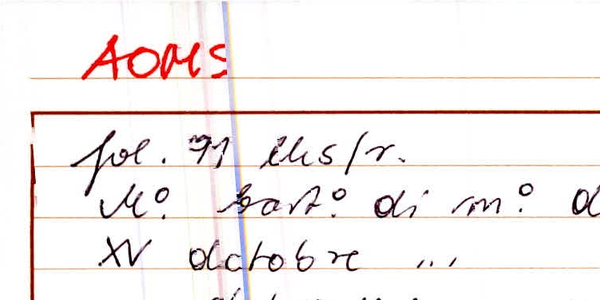 AOMS
fol. 91 lhs/r.
M° bart° di m° d
XV octobre ...